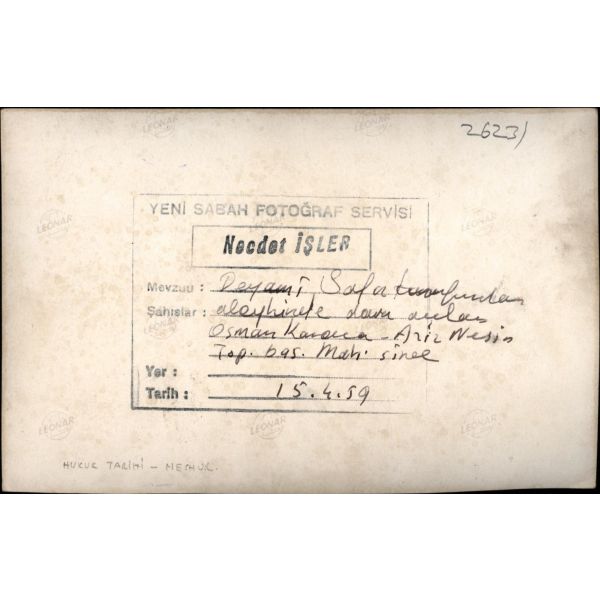 26231
YENİ SABAH FOTOĞRAF SERVİSİ
Necdet İŞLER
Mevzuu : Peyami Safa tarafından
Şahıslar : aleyhinde dava açılan
Osman Karaca - Aziz Nesin
Top. bas. Mah.
Yer :
Tarih : 15.4.59
HUKUK TARİHİ - MEŞHUR
LEONAR